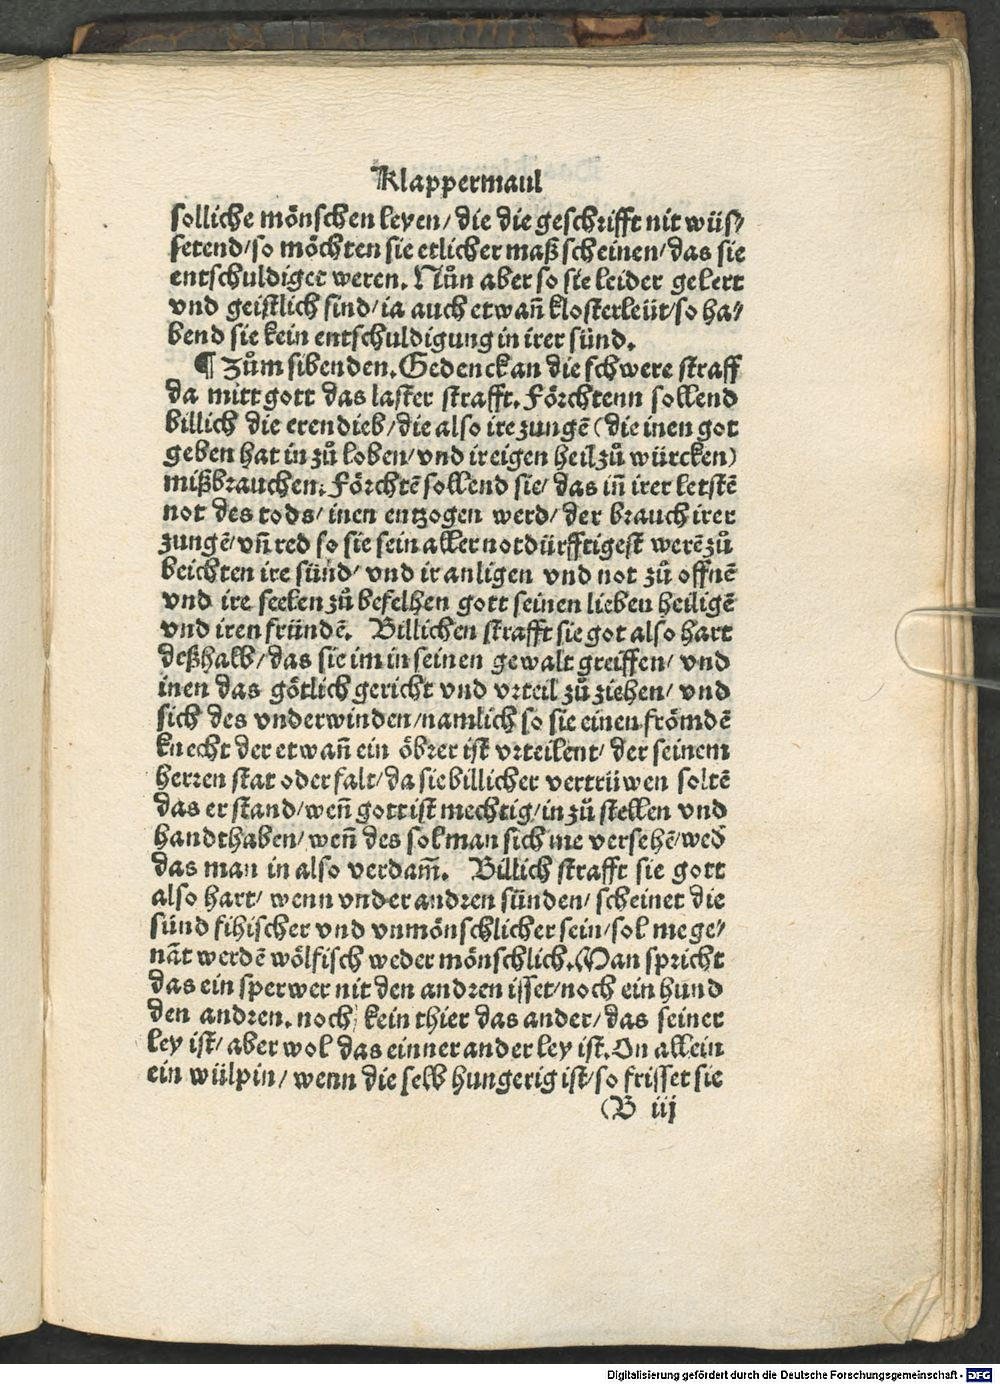 Klappermaul
solliche mönschen leyen/ die die geschrifft nit wüs⸗
setend/ so möchten sie etlicher maß scheinen/ das sie
entschuldiget weren. Nůn aber so sie leider gelert
vnd geistlich sind/ ia auch etwañ klosterleüt/ so ha⸗
bend sie kein entschuldigung in irer sünd.
¶ Zům sibenden. Gedenck an die schwere straff
da mitt gott das laster strafft. Förchtenn sollend
billich die erendieb/ die also ire zungē (die inen got
geben hat in zů loben/ vnd ir eigen heil zů würcken)
mißbrauchen: Förchtē sollend sie/ das iñ irer letstē
not des tods/ inen entzogen werd/ der brauch irer
zungē/ vñ red so sie sein aller notdürfftigest werē zů
beichten ire sünd/ vnd ir anligen vnd not zů offnē
vnd ire seelen zů befelhen gott seinen lieben heiligē
vnd iren fründē. Billichen strafft sie got also hart
deßhalb/ das sie im in seinen gewalt greiffen/ vnd
inen das götlich gericht vnd vrteil zů ziehen/ vnd
sich des vnderwinden/ namlich so sie einen frömdē
knecht der etwañ ein öbrer ist vrteilent/ der seinem
herren stat oder falt/ da sie billicher vertrüwen soltē
das er stand/ weñ gott ist mechtig/ in zů stellen vnd
handthaben/ weñ des sol man sich me versehē/ wed̄
das man in also verdam̄. Billich strafft sie gott
also hart/ wenn vnder andren sünden/ scheinet die
sünd fihischer vnd vnmönschlicher sein/ sol me ge⸗
nāt werdē wölfisch weder mönschlich. Man spricht
das ein sperwer nit den andren isset/ noch ein hund
den andren. noch kein thier das ander/ das seiner
ley ist/ aber wol das einner ander ley ist. On allein
ein wülpin/ wenn die selb hungerig ist/ so frisset sie
B iij
Digitalisierung gefördert durch die Deutsche Forschungsgemeinschaft - DFG